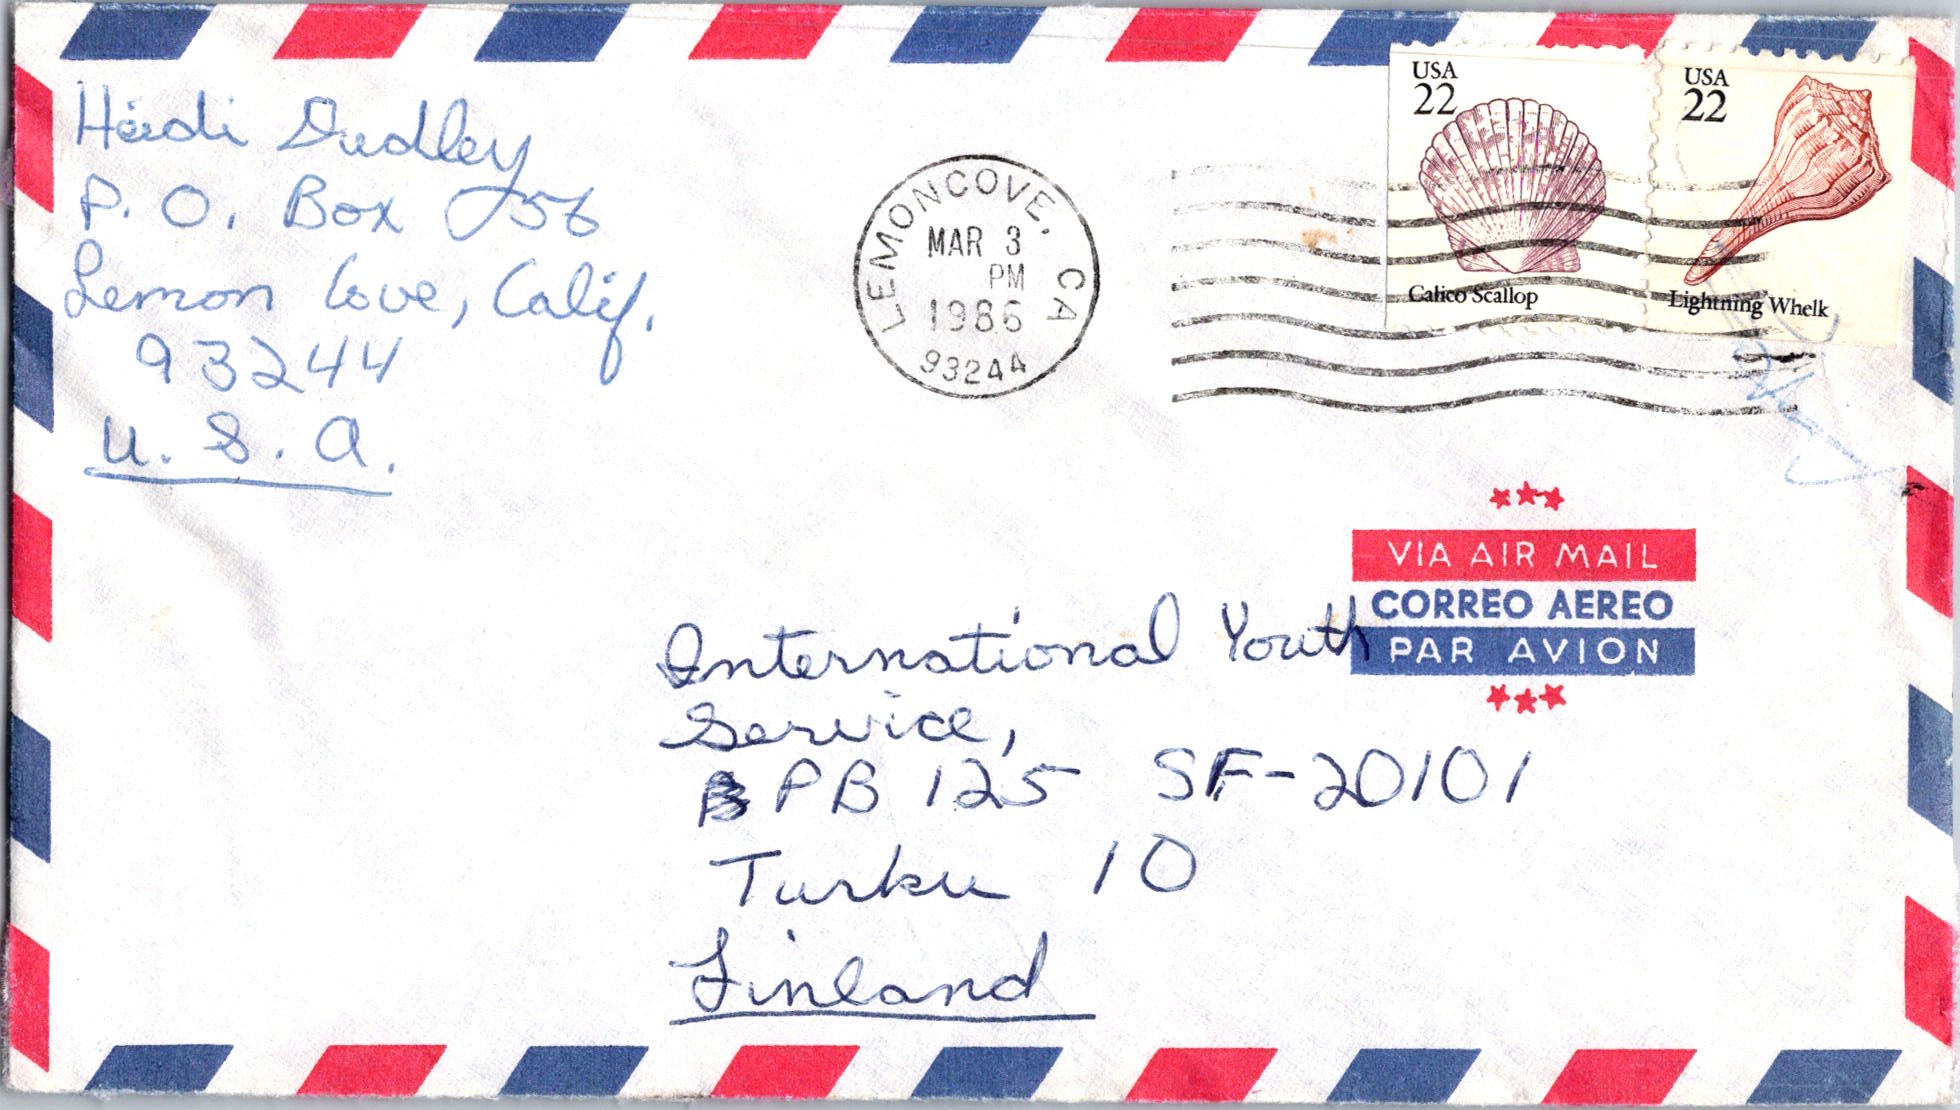 Heidi Dudley
P. O. Box 256
Lemon Cove, Calif.
93244
U. S. A.
LEMONCOVE, CA
MAR 3
PM
1986
93244
USA
22
Calico Scallop
USA
22
Lightning Whelk
VIA AIR MAIL
CORREO AEREO
PAR AVION
International Youth
Service,
PB 125 SF-20101
Turku 10
Finland